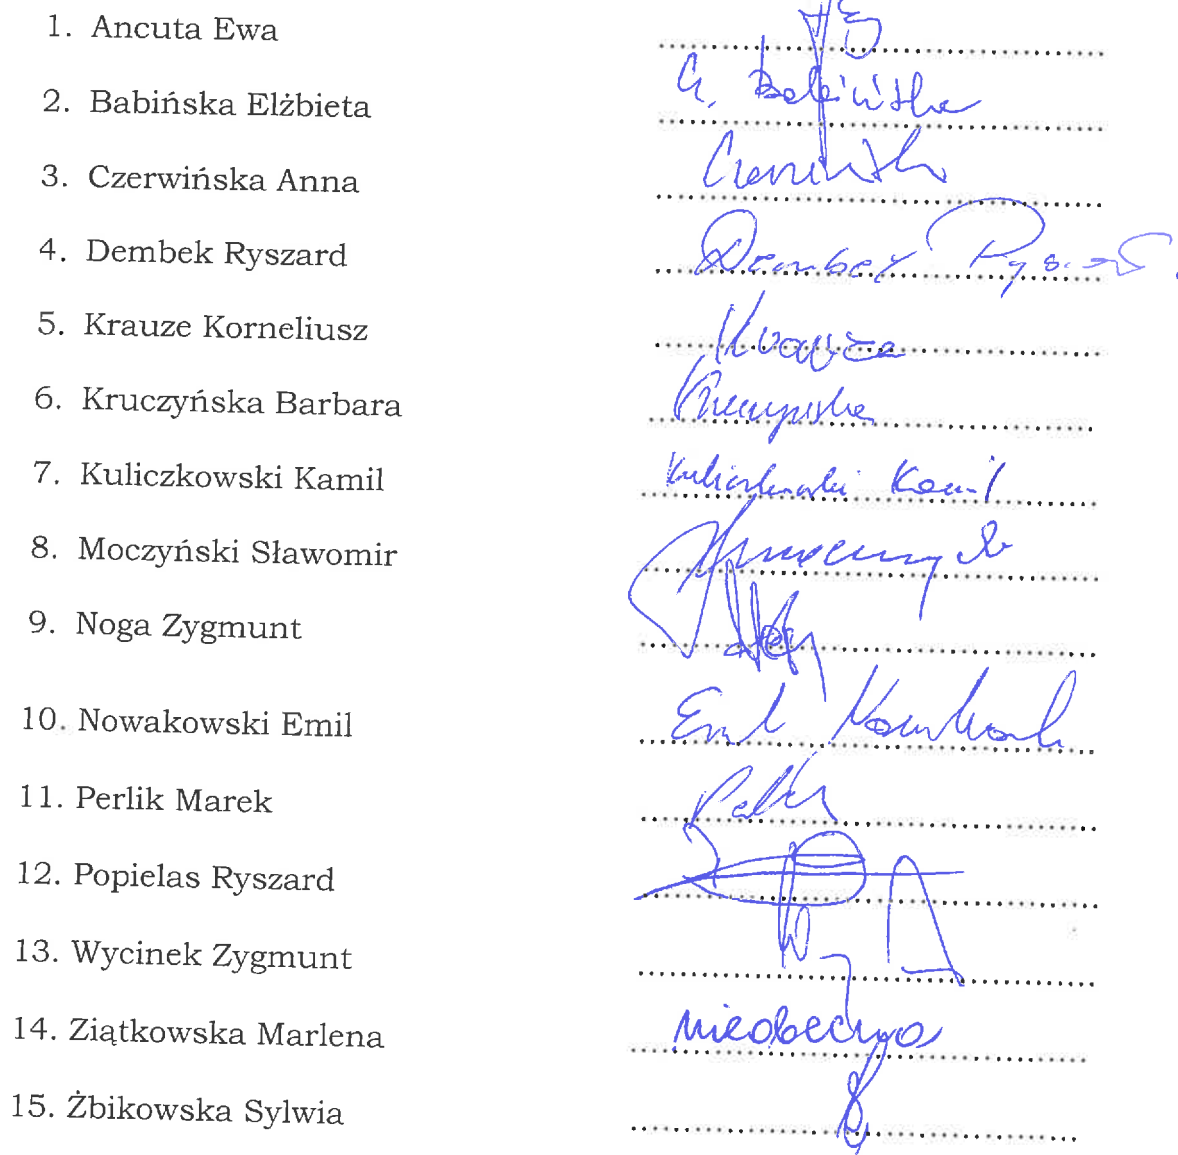 1. Ancuta Ewa
2. Babińska Elżbieta
3. Czerwińska Anna
4. Dembek Ryszard Dembek Ryszard
5. Krauze Korneliusz Krauze
6. Kruczyńska Barbara Kruczyńska
7. Kuliczkowski Kamil Kuliczkowski Kamil
8. Moczyński Sławomir
9. Noga Zygmunt
10. Nowakowski Emil Emil Nowakowski
11. Perlik Marek
12. Popielas Ryszard
13. Wycinek Zygmunt
14. Ziątkowska Marlena nieobecna
15. Żbikowska Sylwia